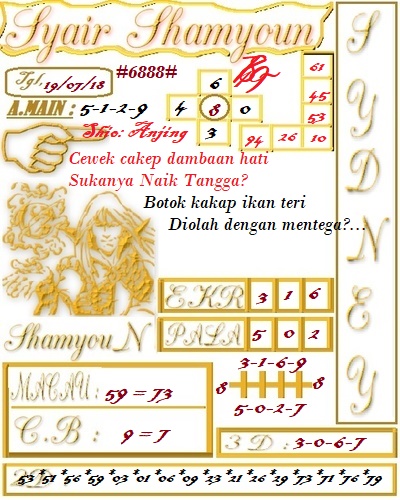 Syair Shamyoun
Tgl. 19/07/18
#6888#
A.MAIN : 5-1-2-9
Shio: Anjing
6
4 8 0
3
61
45
53
94 26 10
Cewek cakep dambaan hati
Sukanya Naik Tangga?
Botok kakap ikan teri
Diolah dengan mentega?...
SYDNEY
EKR 3 1 6
Shamyou_N PALA 5 0 2
MACAU : 59 = 73
C.B : 9 = 7
3-1-6-9
8 8
5-0-2-7
3D : 3-0-6-7
2D 53*51*56*59*03*01*06*09*23*21*26*29*73*71*76*79